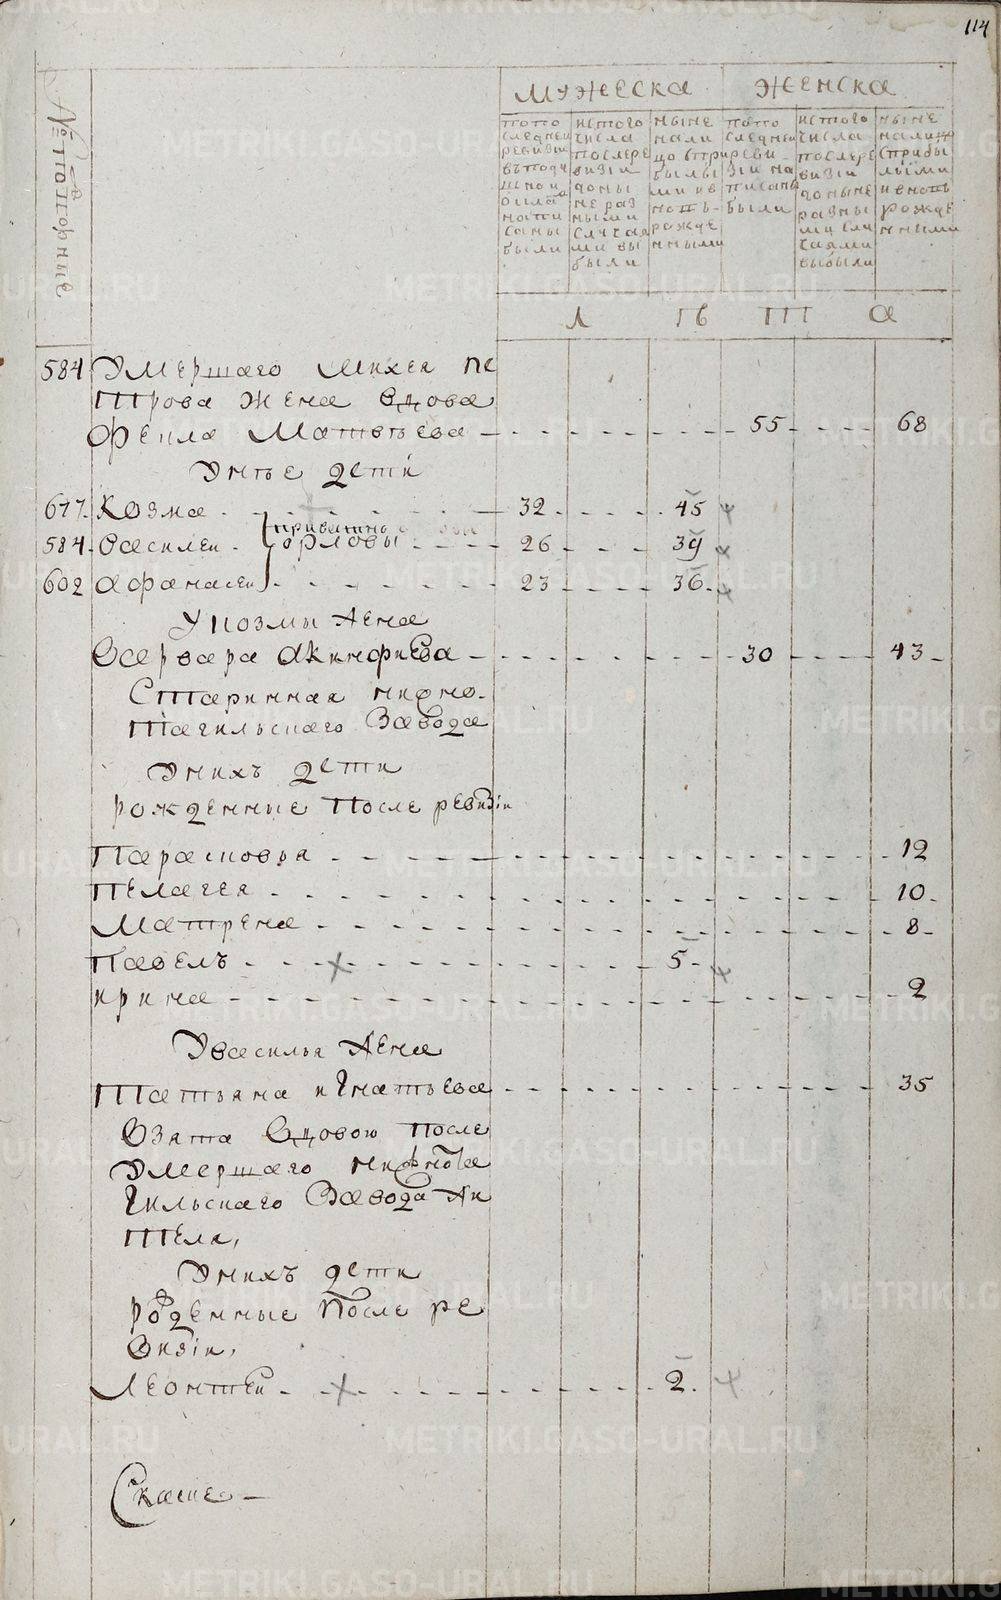 114
МУЖЕСКА
ЖЕНСКА
попо
следней
ревизии
въподу
шно
были
истого
числа
послере
визiи
доны
не раз
ными
случая
ми вы
были
ныне
нали
цо спри
былы
ми ив
новь
рожде
нными
попо
следней
реви
зiи на
писаны
были
истого
числа
послере
визiи
доныне
разны
ми слу
чаями
выбыли
ныне
нали
сприбы
лыми
ивновь
рожде
нными
Л Ѣ Т А
584 Умершаго Михея пе
трова жена вдова
Фекла Матвѣева 55 68
Унѣе дети
677 Козма 32 45
584 Василей орловы 26 39
602 Афанасей 23 36
У козмы жена
Варвара Акинфиева 30 43
Старинная нижно
тагильскаго завода
Унихъ дети
рожденные после ревизiи
Парасковья 12
Пелагея 10
Матрена 8
Павелъ 5
ирина 2
Увасилья жена
Татьяна игнатьева 35
Взята вдовою после
умершаго нижнота
гильскаго завода жи
теля,
Унихъ дети
рожденные после ре
визiи,
Леонтей 2